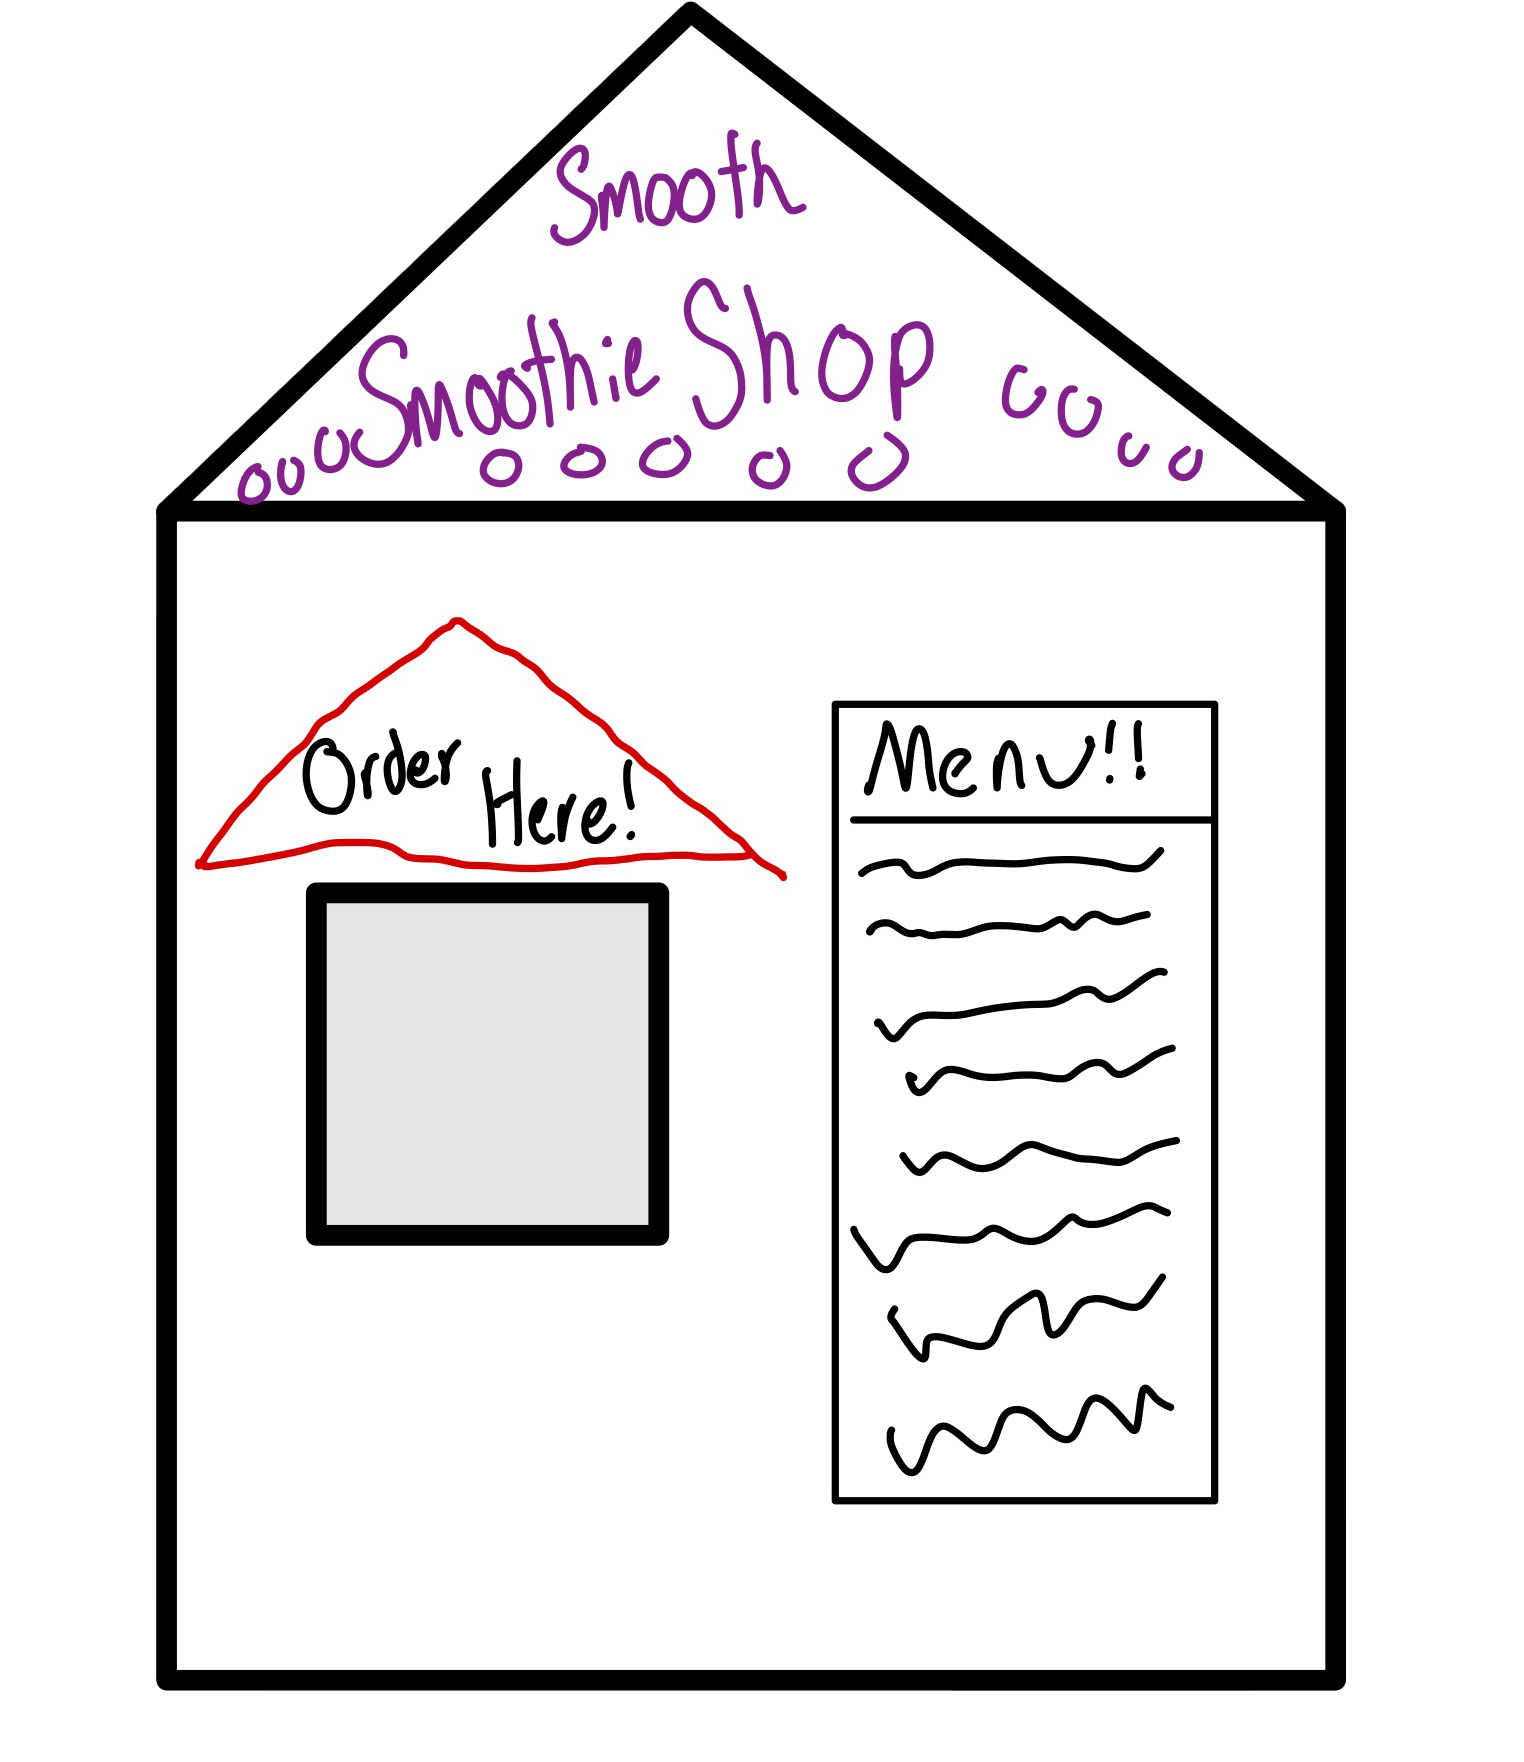 Smooth
Smoothie Shop
Order
Here!
Menu!!